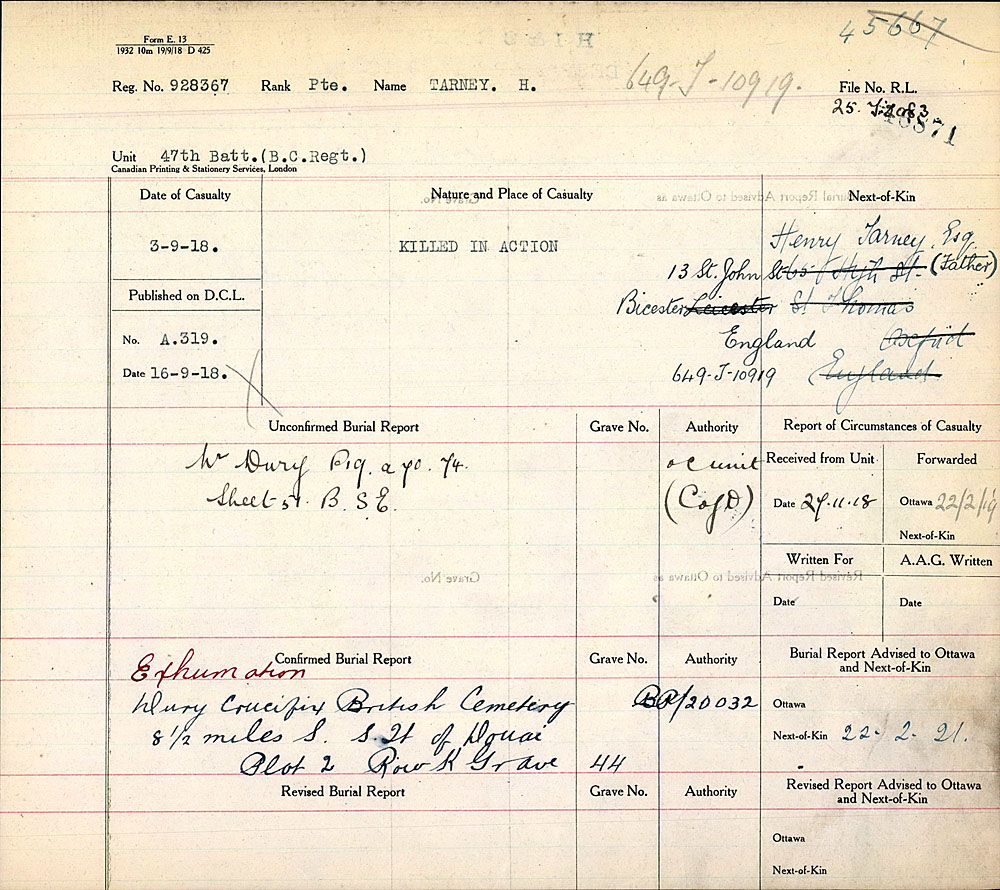 Form E. 13
1932 10m 19/9/18 D 425
45667
Reg. No. 928367 Rank Pte. Name TARNEY. H. 649-J-10919.
File No. R.L.
25.
18871
Unit 47th Batt.(B.C.Regt.)
Canadian Printing & Stationery Services, London
Date of Casualty Nature and Place of Casualty Next-of-Kin
3-9-18. KILLED IN ACTION
Henry Tarney. Esq
13 St. John St 65 High St. (Father)
Bicester Leicester St Thomas
England Oxford
649-J-10919 England
Published on D.C.L.
No. A.319.
Date 16-9-18.
Unconfirmed Burial Report Grave No. Authority Report of Circumstances of Casualty
Nr Dury
Sheet 51. B. S.E.
oc unit
(C of D)
Received from Unit Forwarded
Date 27.11.18 Ottawa 22/2/19
Next-of-Kin
Written For A.A.G. Written
Grave No. Revised Report Advised to Ottawa as
Date Date
Confirmed Burial Report Grave No. Authority Burial Report Advised to Ottawa
and Next-of-Kin
Exhumation
Dury Crucifix British Cemetery BR/20032
Ottawa
8 1/2 miles S. S. of Douai
Next-of-Kin 22-2-21.
Plot 2 Row K Grave 44
Revised Burial Report Grave No. Authority Revised Report Advised to Ottawa
and Next-of-Kin
Ottawa
Next-of-Kin